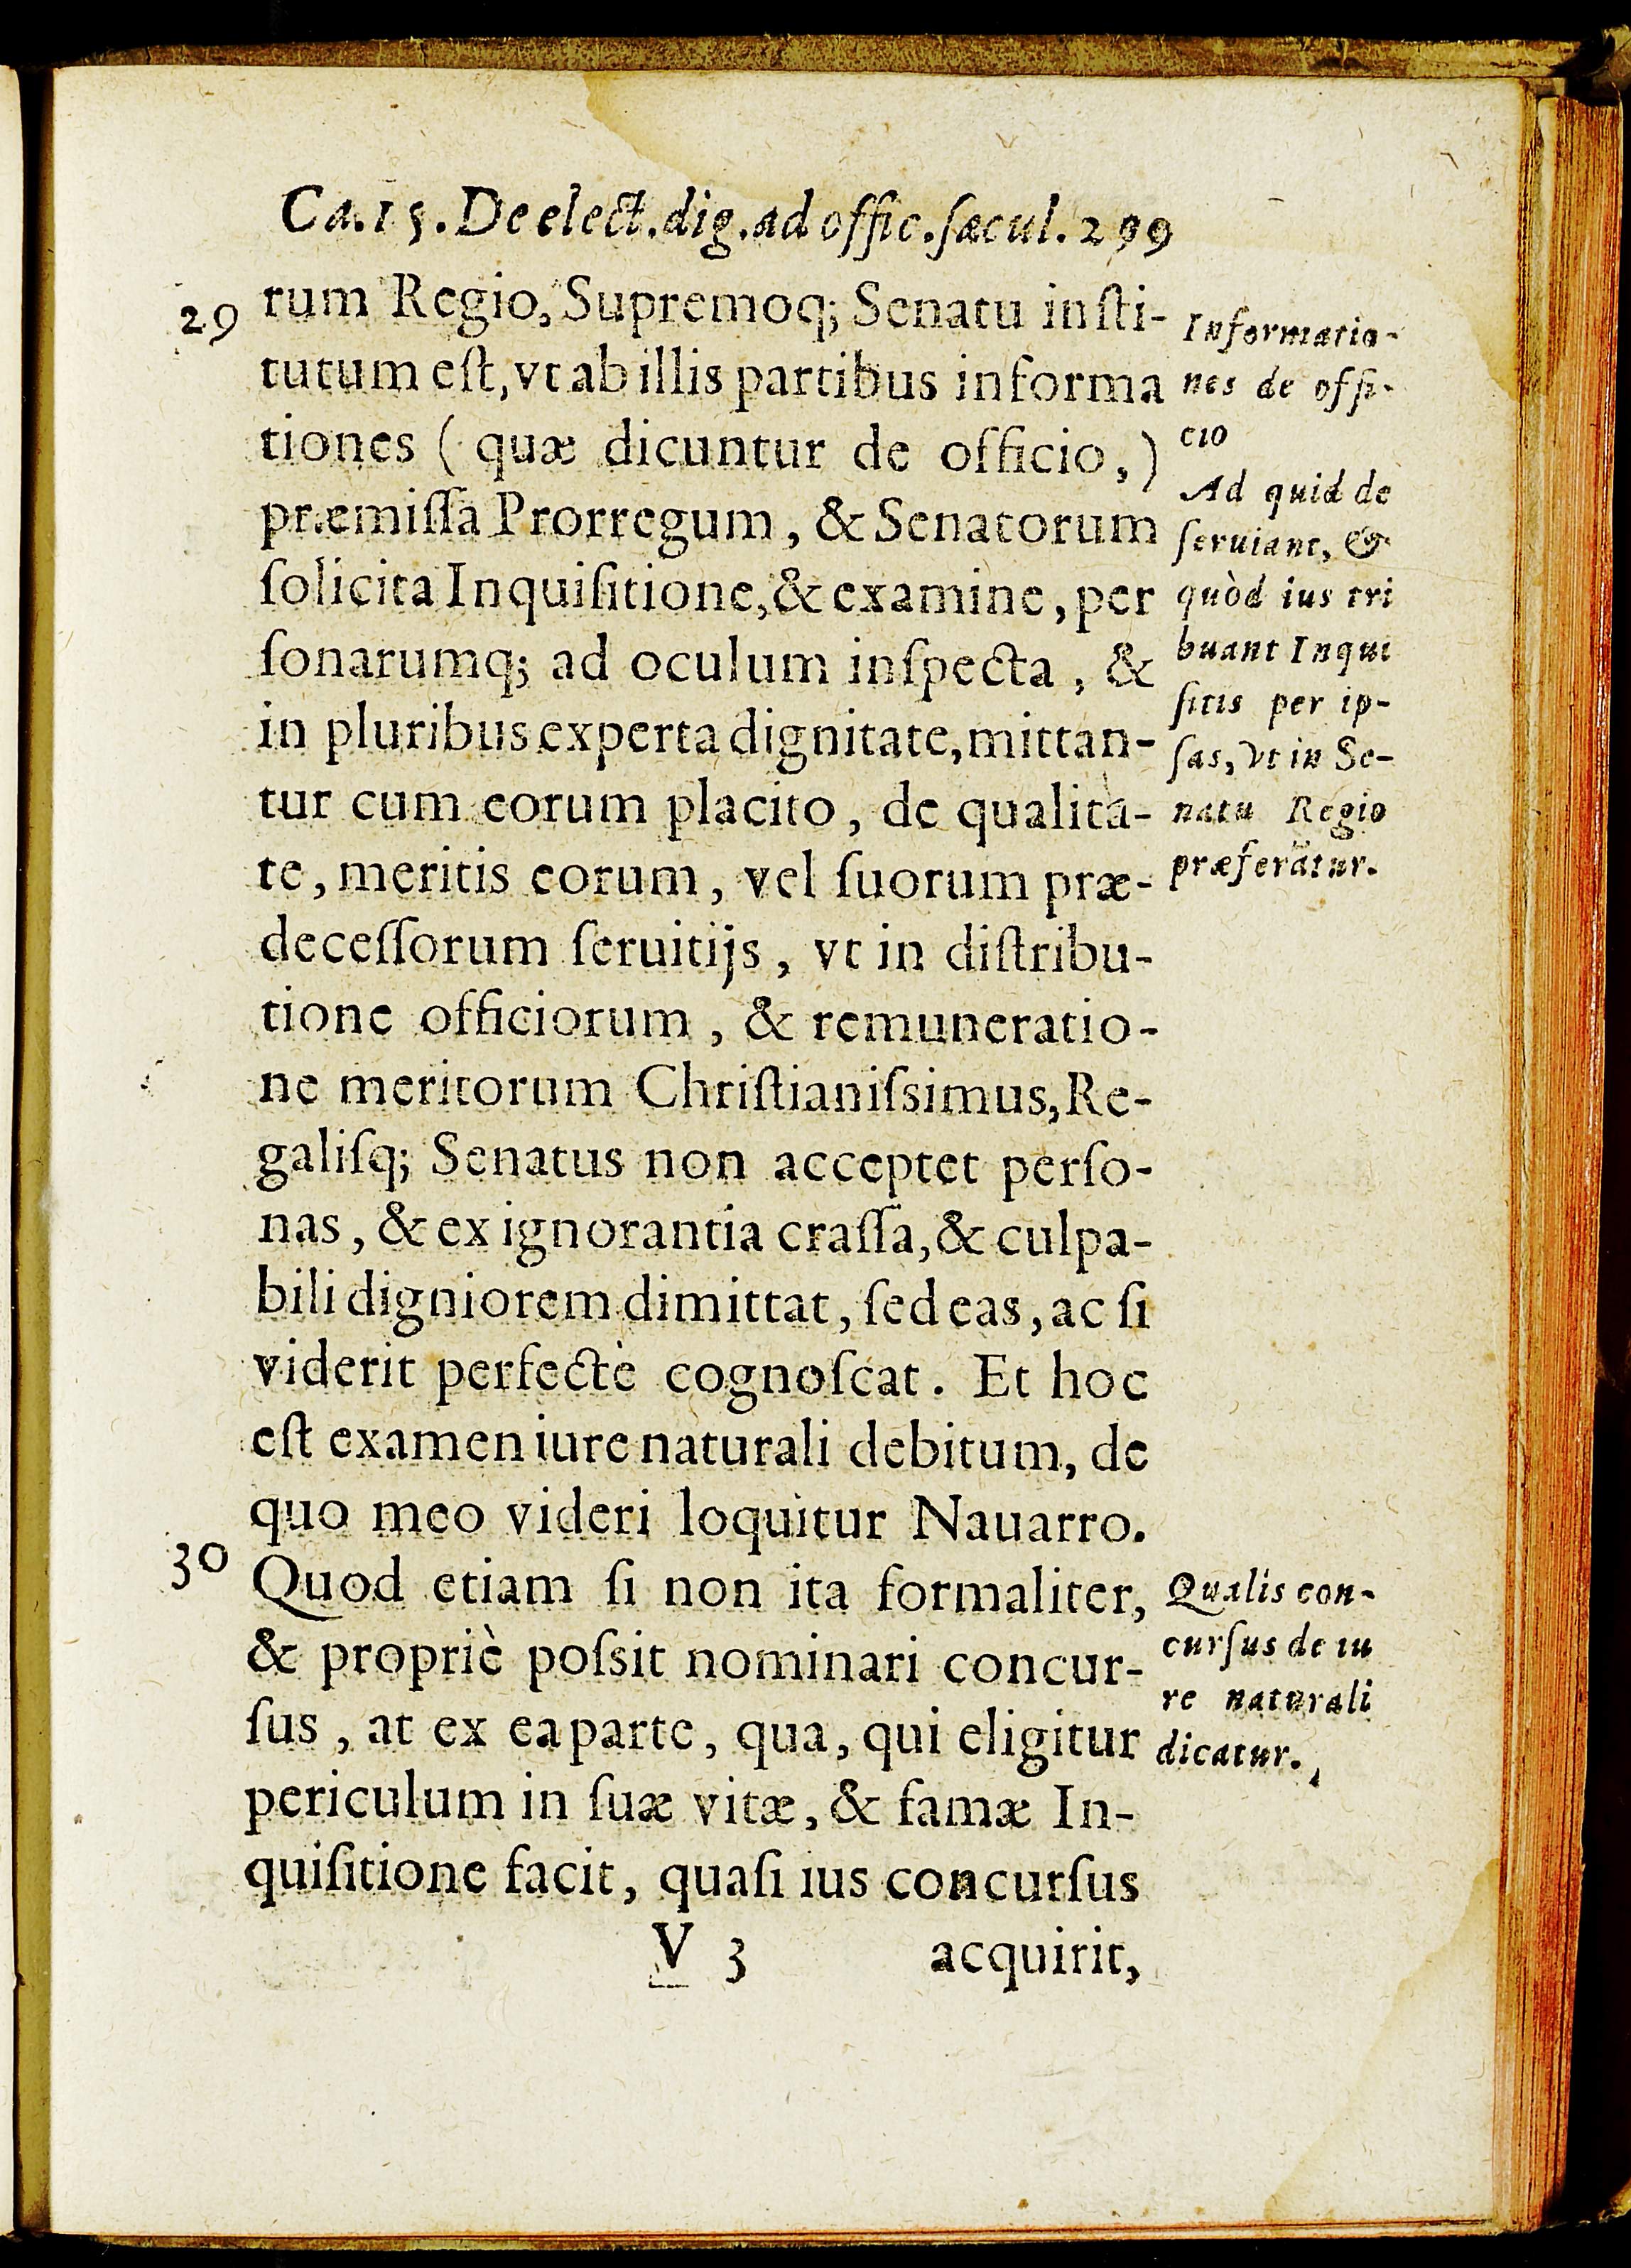 Ca.15.De elect.dig.ad offic.ſæcul.299
29
rum Regio, Supremoq; Senatu inſti-
tutum eſt, vt ab illis partibus informa
tiones ( quæ dicuntur de officio, )
præmiſſa Prorregum, & Senatorum
ſolicita Inquiſitione, & examine, per
ſonarumq; ad oculum inſpecta, &
in pluribus experta dignitate, mittan-
tur cum eorum placito, de qualita-
te, meritis eorum, vel ſuorum præ-
deceſſorum ſeruitijs, vt in diſtribu-
tione officiorum, & remuneratio-
ne meritorum Chriſtianiſsimus, Re-
galiſq; Senatus non acceptet perſo-
nas, & ex ignorantia craſſa, & culpa-
bili digniorem dimittat, ſed eas, ac ſi
viderit perfectè cognoſcat. Et hoc
eſt examen iure naturali debitum, de
quo meo videri loquitur Nauarro.
30
Quod etiam ſi non ita formaliter,
& propriè poſsit nominari concur-
ſus, at ex ea parte, qua, qui eligitur
periculum in ſuæ vitæ, & famæ In-
quiſitione facit, quaſi ius concurſus
V 3 acquirit,
Informatio-
nes de offi-
cio
Ad quid de
ſeruiant, &
quòd ius tri
buant Inqui
ſitis per ip-
ſas, vt in Se-
natu Regio
præferātur.
Qualis con-
curſus de iu
re naturali
dicatur.